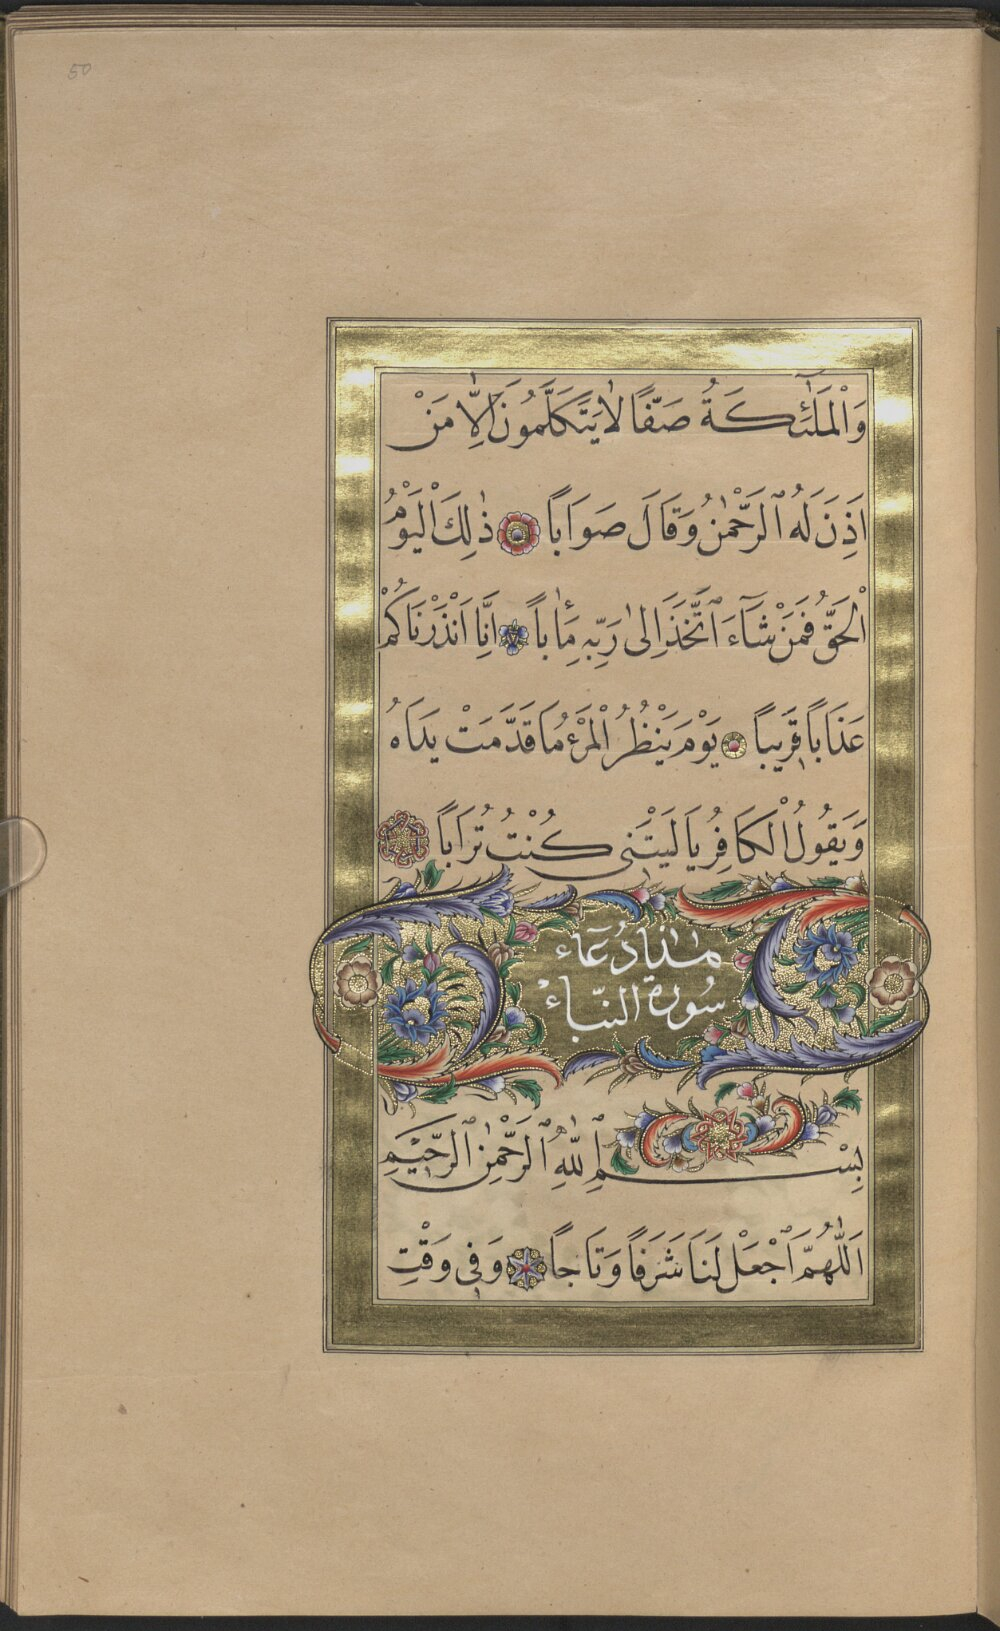 50
وَالْمَلٰٓئِكَةُ صَفًّا لَا يَتَكَلَّمُونَ اِلَّا مَنْ
اَذِنَ لَهُ ٱلرَّحْمٰنُ وَقَالَ صَوَاباً ذٰلِكَ الْيَوْمُ
الْحَقُّ فَمَنْ شَآءَ ٱتَّخَذَ اِلٰى رَبِّهِ مَاٰباً اِنَّا اَنْذَرْنَاكُمْ
عَذَاباً قَرِيباً يَوْمَ يَنْظُرُ الْمَرْءُ مَا قَدَّمَتْ يَدَاهُ
وَيَقُولُ الْكَافِرُ يَا لَيْتَنِي كُنْتُ تُرَاباً
هٰذَا دُعَاء
سُورة النَّبَاءْ
بِسْمِ ٱللّٰهِ ٱلرَّحْمٰنِ ٱلرَّحِيْمِ
اَللّٰهُمَّ ٱجْعَلْ لَنَا شَرَفاً وَتَاجاً وَفِي وَقْتِ